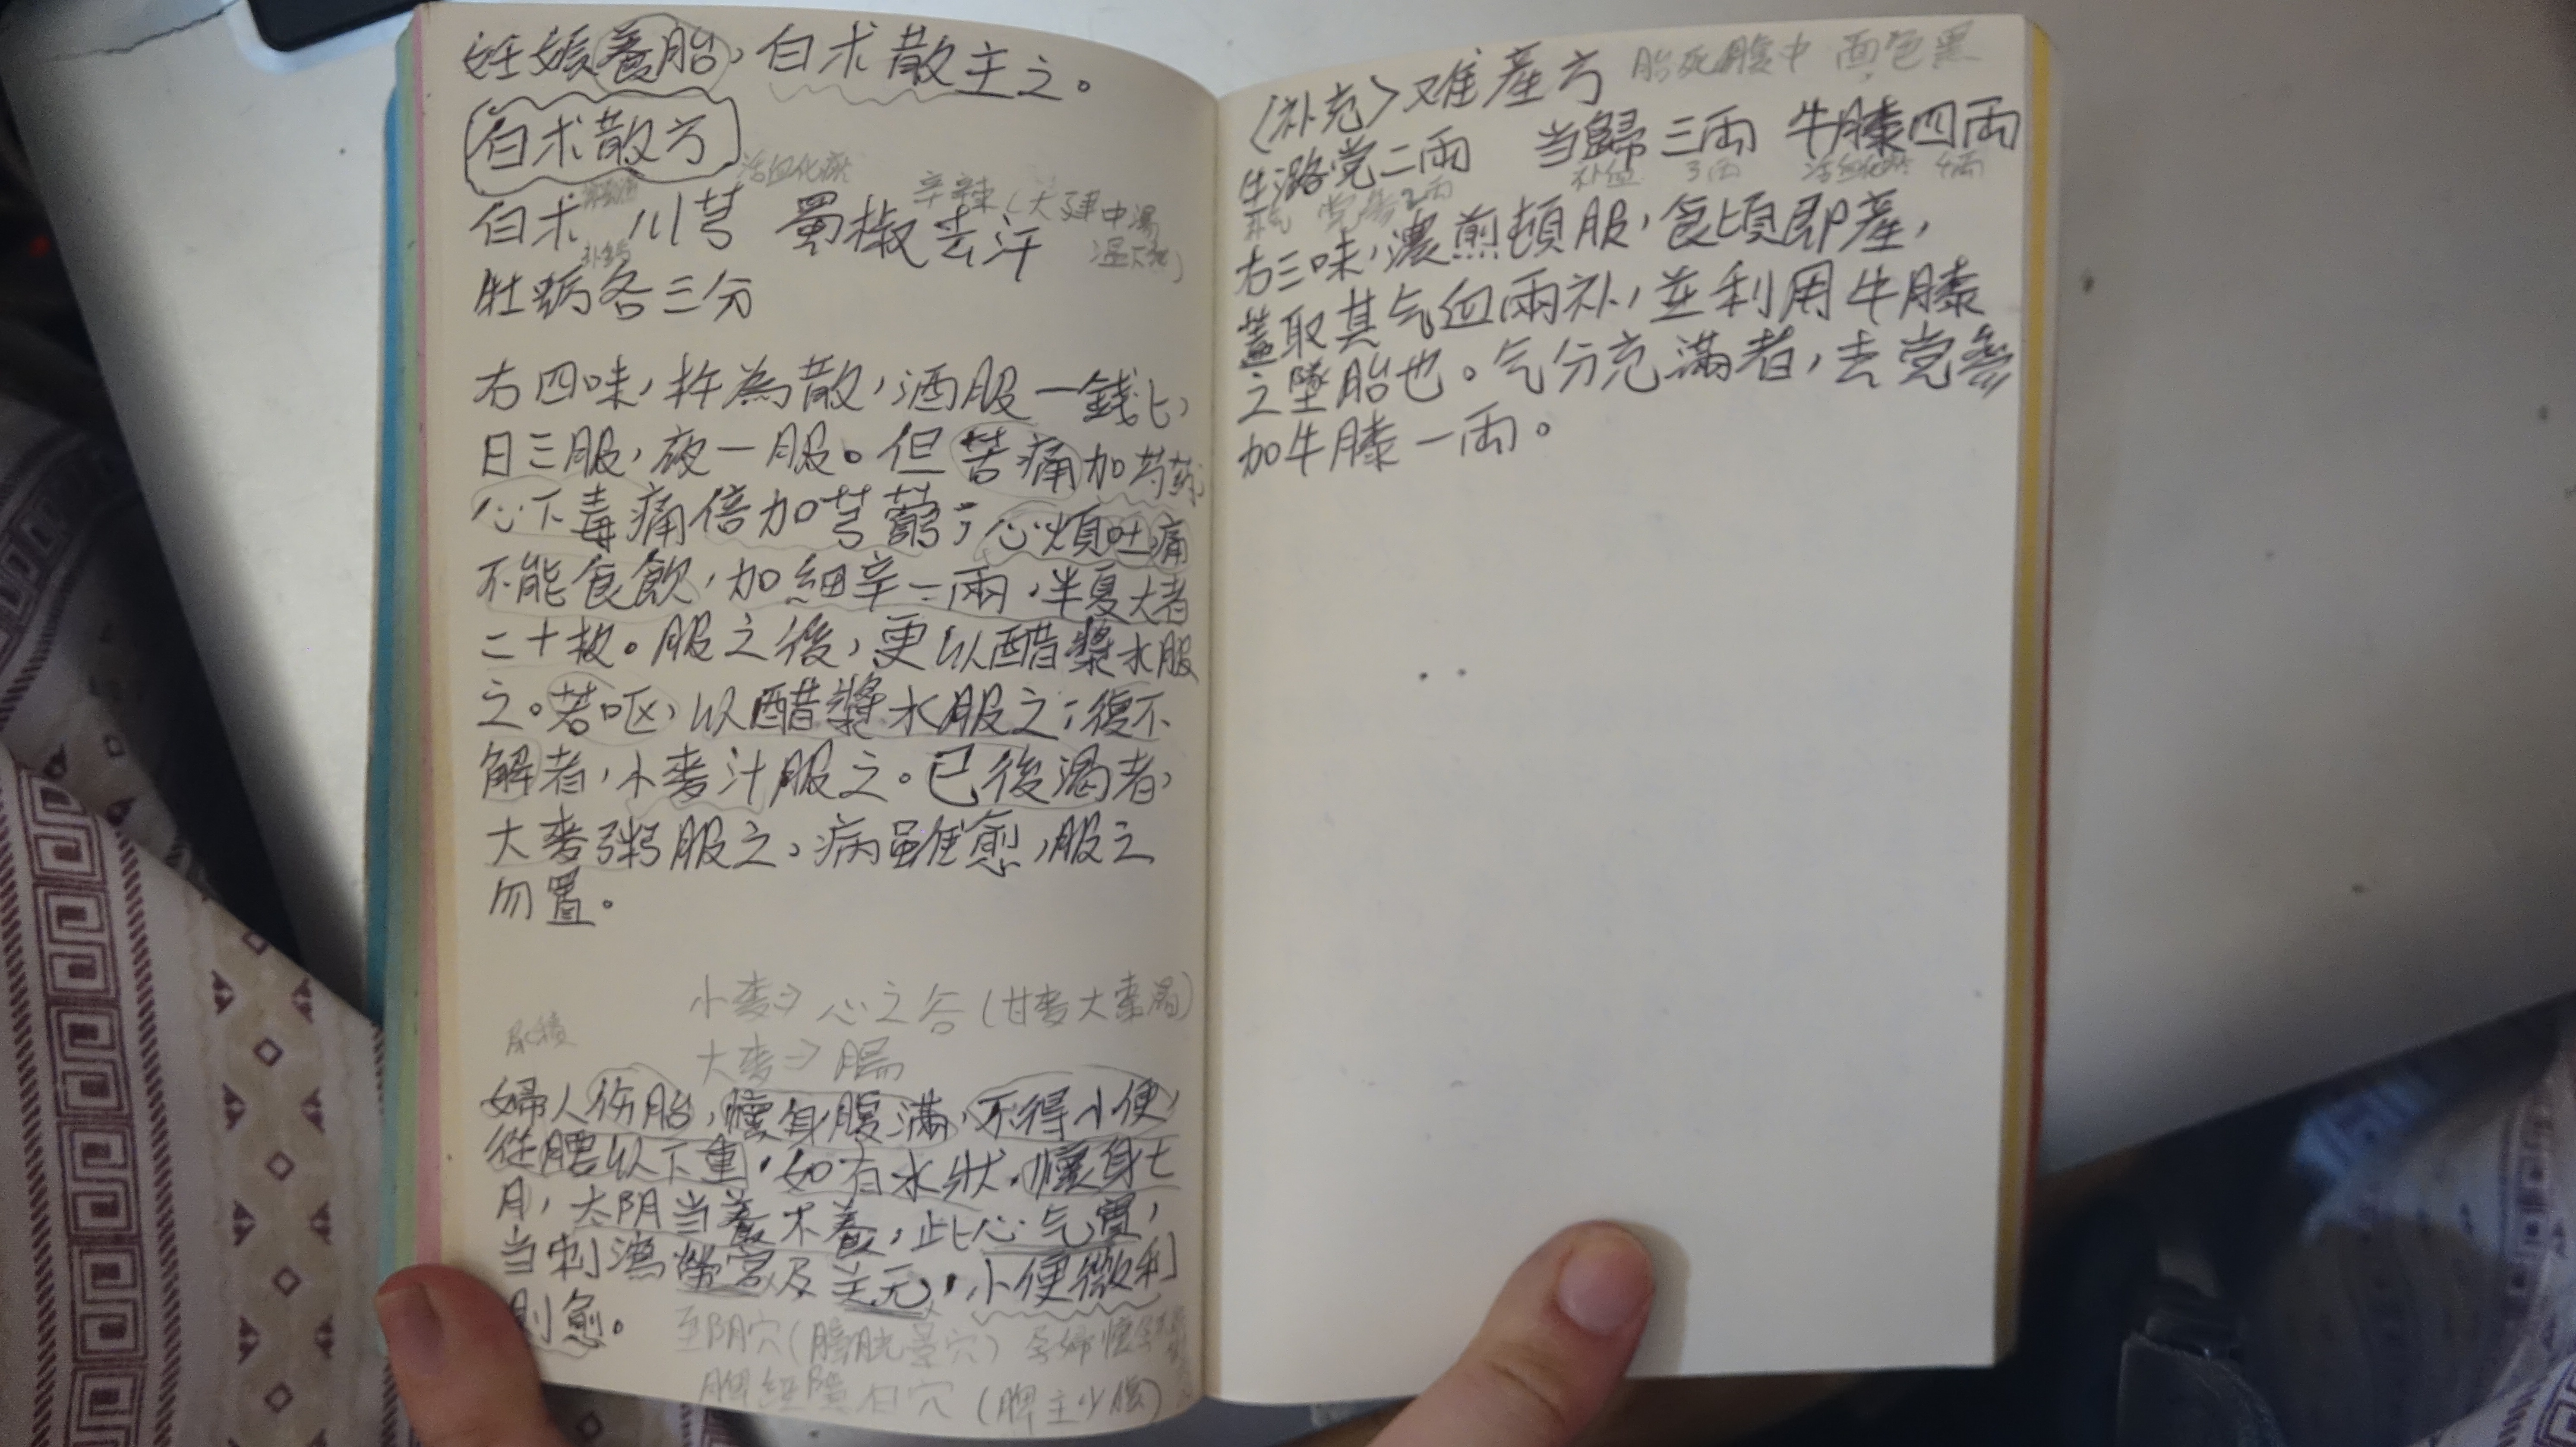 妊娠養胎，白朮散主之。
白朮散方
活血化瘀
辛辣（大建中湯
白朮 川芎 蜀椒去汗
溫下焦）
牡蛎各三分
右四味，杵為散，酒服一錢匕，
日三服，夜一服。但苦痛加芍葯，
心下毒痛倍加芎藭；心煩吐痛
不能食飲，加細辛一兩，半夏大者
二十枚。服之後，更以醋漿水服
之。若呕，以醋漿水服之；復不
解者，小麥汁服之。已後渴者，
大麥粥服之。病雖愈，服之
勿置。
小麥⇒心之谷（甘麥大棗湯）
大麥⇒腸
婦人伤胎，懷身腹滿，不得小便，
從腰以下重，如有水狀，懷身七
月，太阴当養不養，此心气實，
当刺瀉勞宮及关元，小便微利
則愈。
至阴穴（膀胱井穴）孕婦懷孕
脾经隱白穴（脾主少腹）
〈补充〉难產方 胎死腹中 面色黑
生潞党二兩 当歸三兩 牛膝四兩
党參2兩 补血 3兩 活血化瘀 4兩
右三味，濃煎頓服，食頃即產，
蓋取其气血兩补，並利用牛膝
之墜胎也。气分充滿者，去党參
加牛膝一兩。